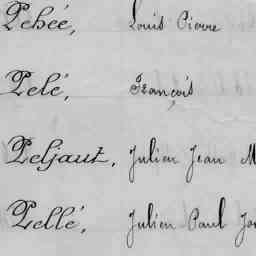 Pehée, Louis Pierre
Pelé, François
Peljaut, Julien Jean M
Pellé, Julien Paul Jo